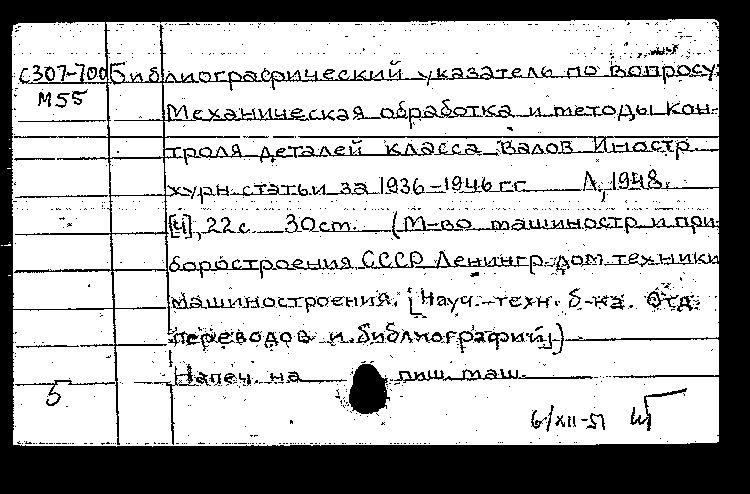 С307-700 Библиографический указатель по вопросу:
М55
Механическая обработка и методы кон-
троля деталей класса валов Иностр.
журн. статьи за 1936-1946 гг. Л., 1948.
[4], 22 с 30 см. (М-во машиностр. и при-
боростроения СССР Ленингр. дом техники
машиностроения. [Науч.-техн. б-ка. Отд.
переводов и библиографий])
Напеч. на пиш. маш.
5
6/XII-51